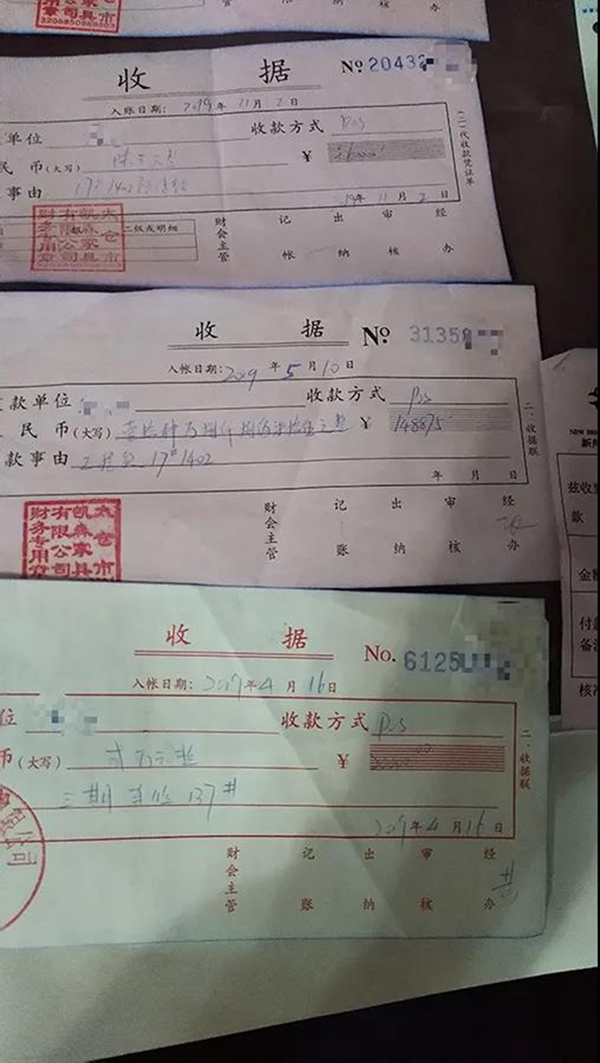 市
具
司
章
3206850988503
收 据 Nº 20432
入帐日期: 2019年 11月 2日
单位 收款方式 Pos
民 币(大写) ¥
事由 17#1402
19年 11月 2日
(二)代收款凭证单
太仓市凯森家具有限公司财务专用章
二级或明细
财会主管 记帐 出纳 审核 经办
收 据 Nº 31358
入帐日期: 2019年 5月 10日
款单位 收款方式 Pos
民 币(大写) 壹拾肆万捌仟捌佰柒拾伍元整 ¥ 148875
款事由 工程款 17#1402
年 月 日
二、收据联
太仓市凯森家具有限公司财务专用章
财会主管 记账 出纳 审核 经办
兹收
款
金
付
备
核
收 据 No. 6125
入帐日期: 2019年 4月 16日
位 收款方式 Pos
币(大写) 贰万元整 ¥
三期 137#
2019年 4月 16日
二、收据联
公司
财会主管 记账 出纳 审核 经办